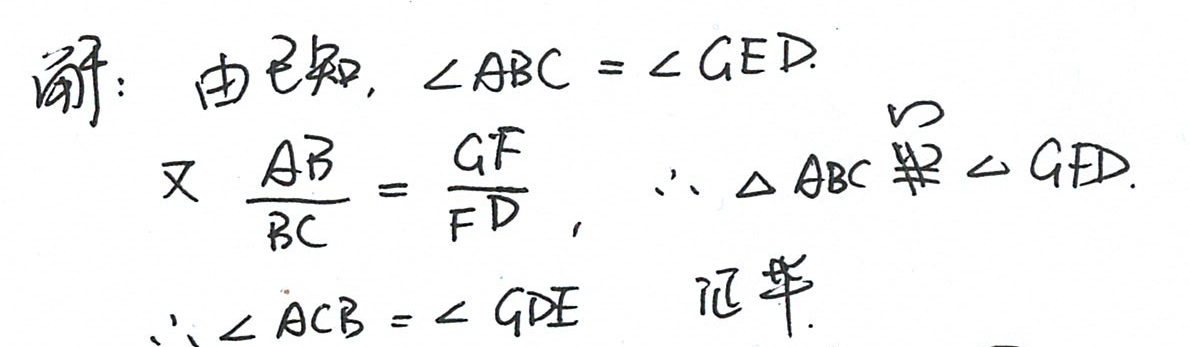 解：由已知，∠ABC = ∠GED.
又 AB/BC = GF/FD， ∴ △ABC ∽ △GFD.
∴ ∠ACB = ∠GDE 证毕.